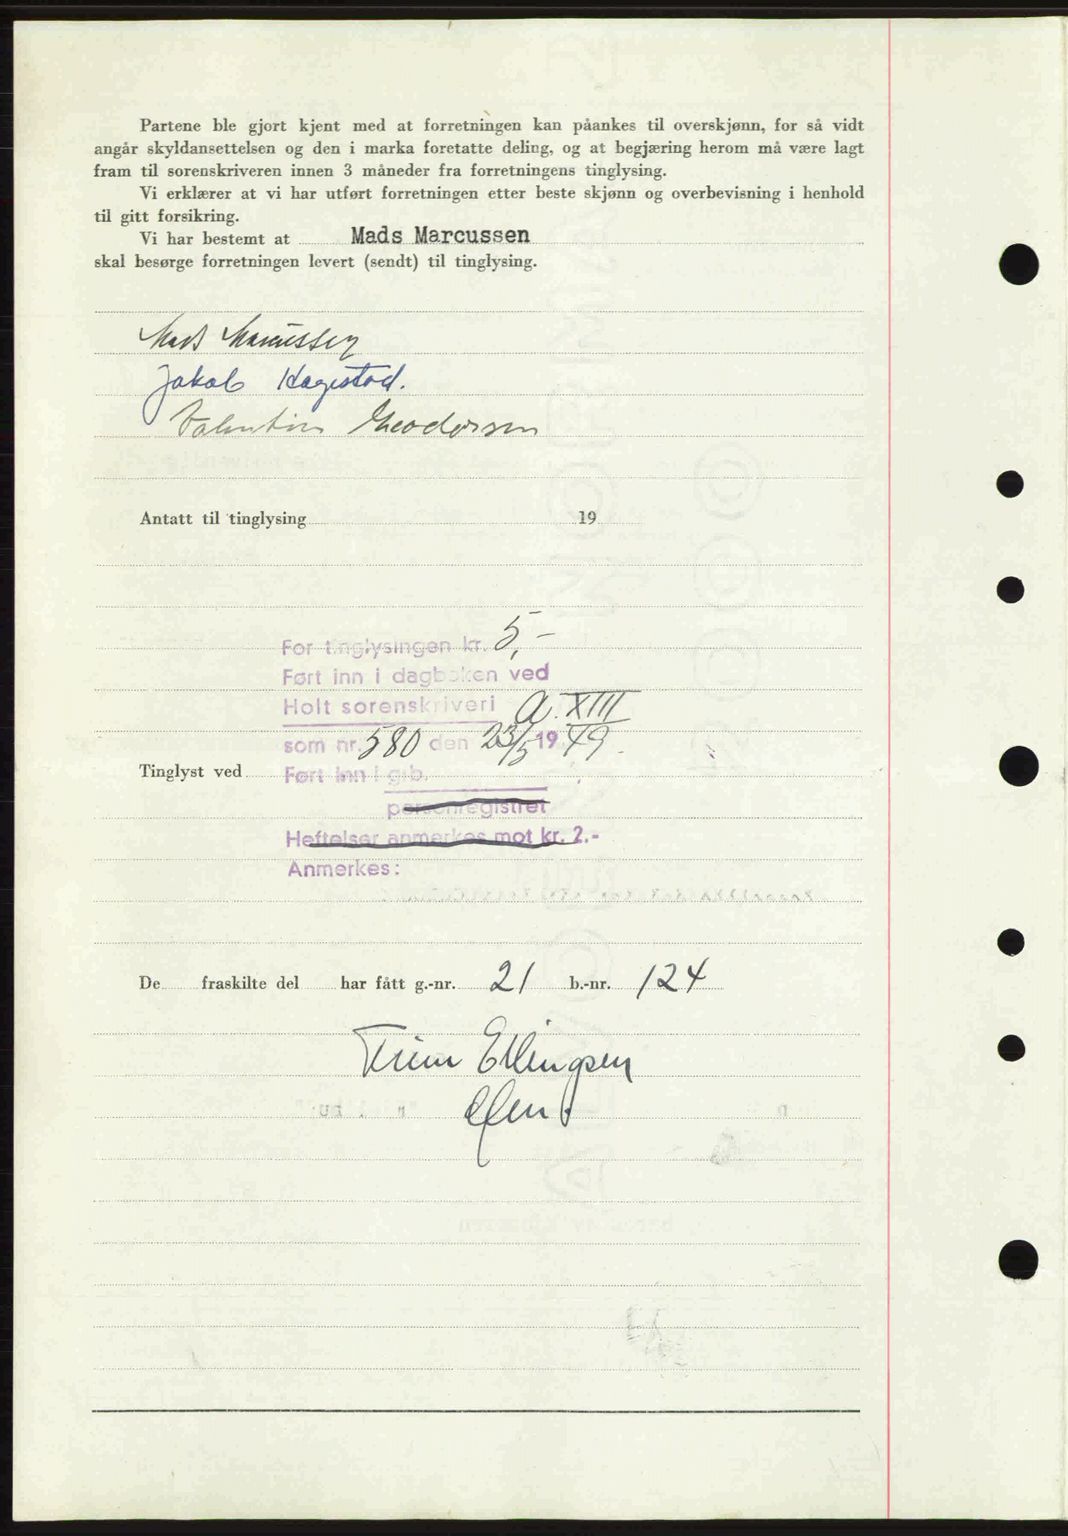 Partene ble gjort kjent med at forretningen kan påankes til overskjønn, for så vidt
angår skyldansettelsen og den i marka foretatte deling, og at begjæring herom må være lagt
fram til sorenskriveren innen 3 måneder fra forretningens tinglysing.
Vi erklærer at vi har utført forretningen etter beste skjønn og overbevisning i henhold
til gitt forsikring.
Vi har bestemt at Mads Marcussen
skal besørge forretningen levert (sendt) til tinglysing.
Mads Marcussen
Jakob Hagestad.
Valentin Theodorsen
Antatt til tinglysing 19
For tinglysingen kr. 5,-
Ført inn i dagboken ved
Holt sorenskriveri a. XIII
som nr. 580 den 23/5 1949.
Tinglyst ved Ført inn i grb.
personregistret
Heftelser anmerkes mot kr. 2.-
Anmerkes:
De fraskilte del har fått g.-nr. 21 b.-nr. 124
Ellingsen